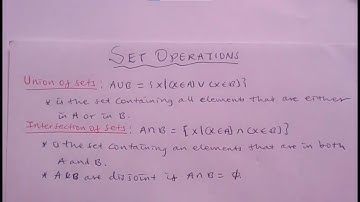 SET OPERATIONS
Union of sets: A∪B = {x|(x∈A) ∨ (x∈B)}
* is the set containing all elements that are either
in A or in B.
Intersection of sets: A∩B = {x|(x∈A) ∧ (x∈B)}
* is the set containing an elements that are in both
A and B.
* A & B are disjoint if A∩B = ∅.